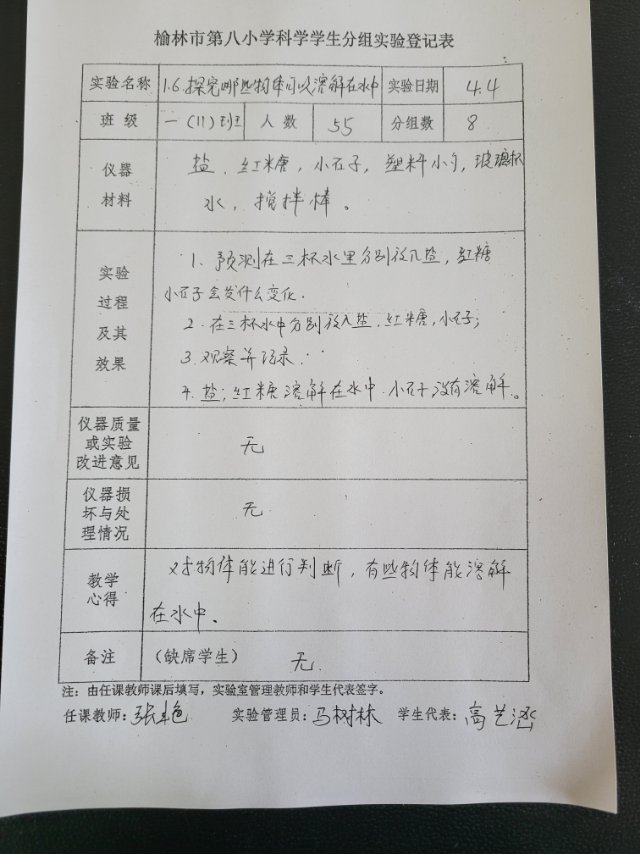 榆林市第八小学科学学生分组实验登记表
实验名称 1.6.探究哪些物体可以溶解在水中 实验日期 4.4
班 级 一(11)班 人 数 55 分组数 8
仪器 材料 盐、红糖，小石子，塑料小勺，玻璃杯
水，搅拌棒。
实验 过程 及其 效果
1、预测在三杯水里分别放入盐，红糖
小石子会发什么变化.
2、在三杯水中分别放入盐，红糖，小石子；
3、观察并记录.
4. 盐；红糖溶解在水中.小石子没有溶解。
仪器质量 或实验 改进意见 无
仪器损 坏与处 理情况 无
教学 心得 对物体能进行判断，有些物体能溶解
在水中.
备注 (缺席学生) 无.
注：由任课教师课后填写，实验室管理教师和学生代表签字。
任课教师：张艳 实验管理员：马树林 学生代表：高艺涵